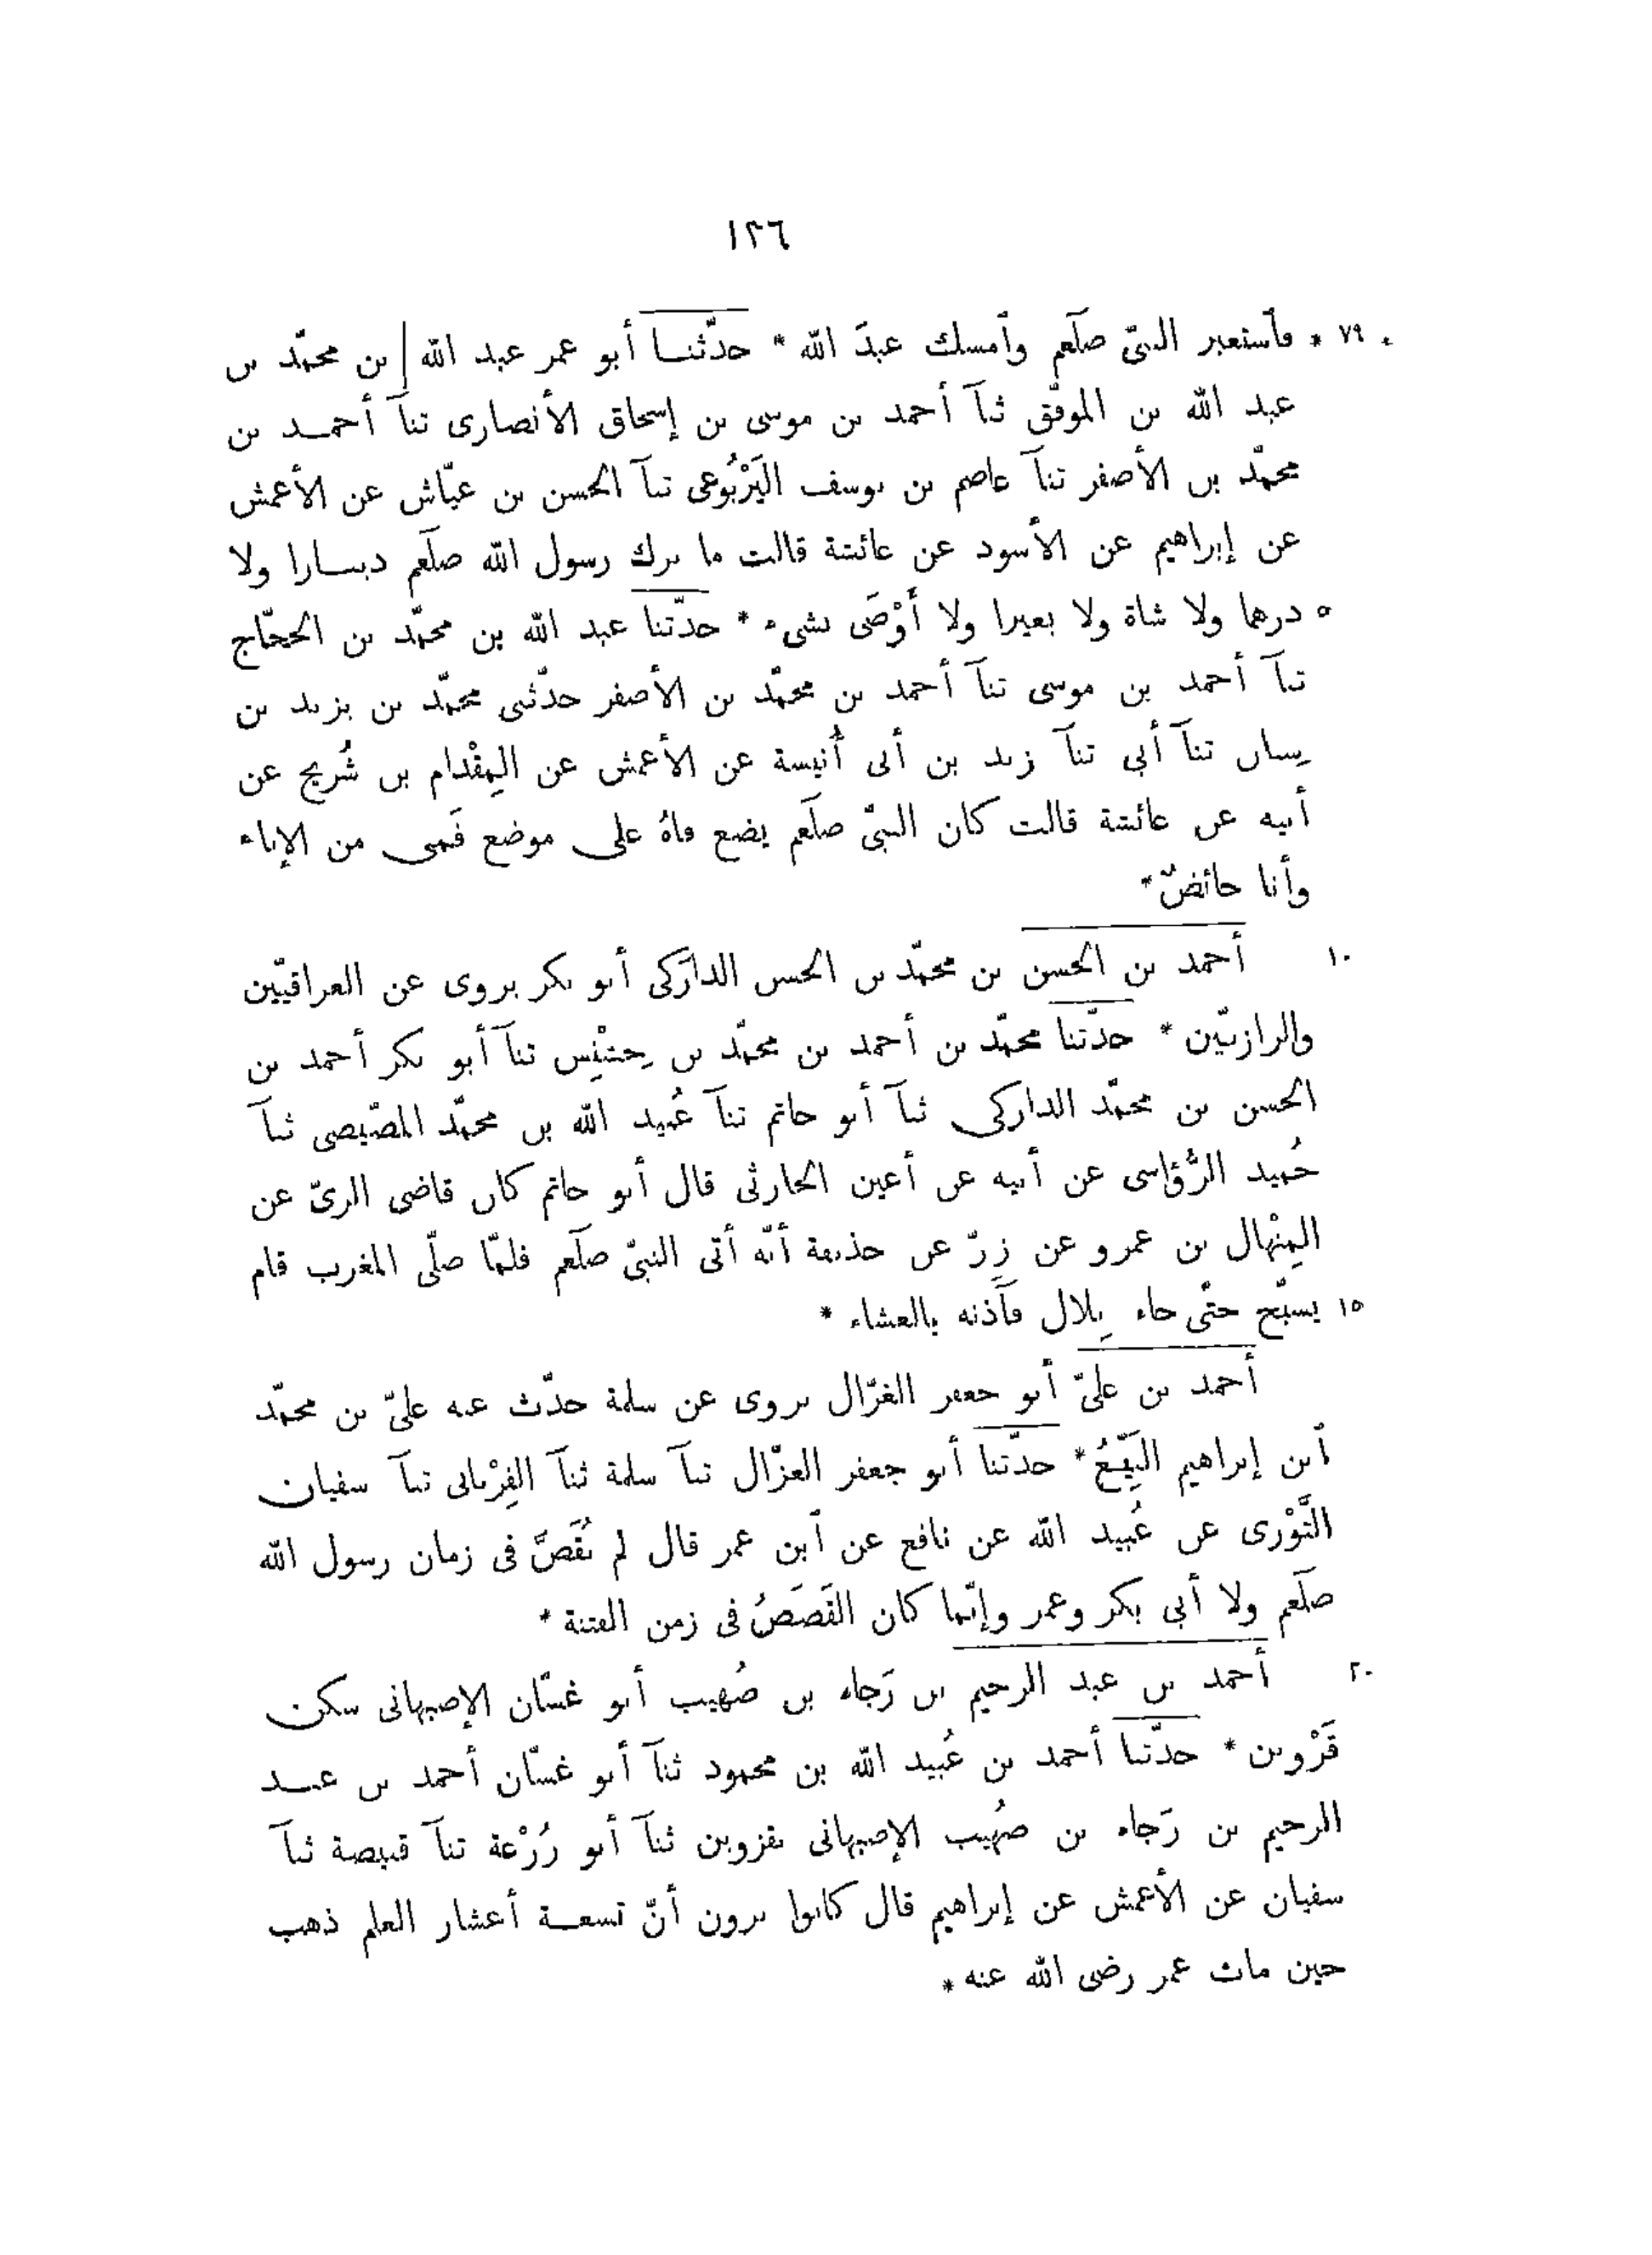 ١٢٦
* ٧٩ * فٱستعبر النبىّ صلّعم وأمسك عبدَ الله * حدّثنـا أبو عمر عبد الله | بن محمّد بن
عبد الله بن الموفّق ثنآ أحمد بن موسى بن إسحاق الأنصارى ثنآ أحمـد بن
محمّد بن الأصفر ثنآ عاصم بن يوسف اليَرْبُوعى ثنآ الحسن بن عيّاش عن الأعمش
عن إبراهيم عن الأسود عن عائشة قالت ما ترك رسول الله صلّعم دينـارا ولا
٥ درهما ولا شاة ولا بعيرا ولا أَوْصَى بشىء * حدّثنا عبد الله بن محمّد بن الحجّاج
ثنآ أحمد بن موسى ثنآ أحمد بن محمّد بن الأصفر حدّثنى محمّد بن يزيد بن
سِنان ثنآ أبى ثنآ زيد بن أبى أُنيسة عن الأعمش عن المِقْدام بن شُريح عن
أبيه عن عائشة قالت كان النبىّ صلّعم يضع فاهُ على موضع فَمى من الإناء
وأنا حائضٌ *
١٠ أحمد بن الحسن بن محمّد بن الحسن الدارَكى أبو بكر يروى عن العراقيّين
والرازيّين * حدّثنا محمّد بن أحمد بن محمّد بن جِشْنِس ثنآ أبو بكر أحمد بن
الحسن بن محمّد الداركى ثنآ أبو حاتم ثنآ عُبيد الله بن محمّد المصّيصى ثنآ
حُميد الرُّؤاسى عن أبيه عن أعين الحارثى قال أبو حاتم كان قاضى الرىّ عن
المِنْهال بن عمرو عن زِرّ عن حذيفة أنّه أتى النبىّ صلّعم فلمّا صلّى المغرب قام
١٥ يسبّح حتّى جاء بِلال فآذنه بالعشاء *
أحمد بن علىّ أبو جعفر الغزّال يروى عن سلمة حدّث عنه علىّ بن محمّد
ٱبن إبراهيم البَيِّعُ * حدّثنا أبو جعفر الغزّال ثنآ سلمة ثنآ الفِرْيابى ثنآ سفيان
الثَّوْرى عن عُبيد الله عن نافع عن ٱبن عمر قال لم يُقَصَّ فى زمان رسول الله
صلّعم ولا أبى بكر وعمر وإنّما كان القَصَصُ فى زمن الفتنة *
٢٠ أحمد بن عبد الرحيم بن رَجاء بن صُهيب أبو غسّان الإصبهانى سكن
قَزْوين * حدّثنا أحمد بن عُبيد الله بن محمود ثنآ أبو غسّان أحمد بن عبـد
الرحيم بن رَجاء بن صُهيب الإصبهانى بقزوين ثنآ أبو زُرْعة ثنآ قبيصة ثنآ
سفيان عن الأعمش عن إبراهيم قال كانوا يرون أنّ تسعـة أعشار العلم ذهب
حين مات عمر رضى الله عنه *